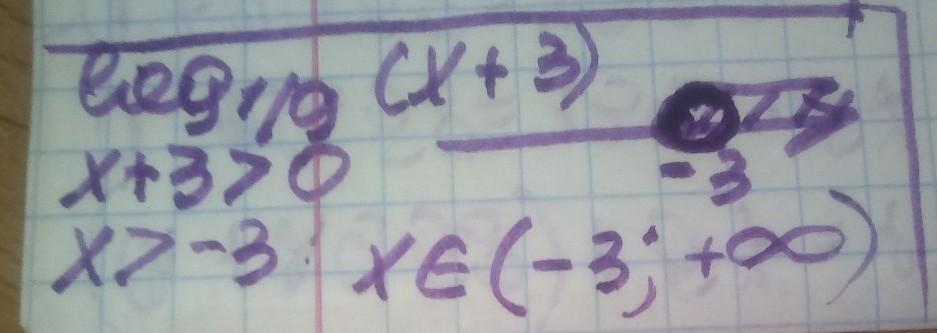 log 1/9 (x+3)
x+3>0
-3
x>-3 x∈(-3; +∞)